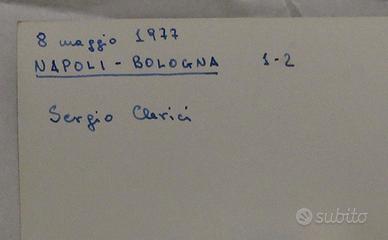 8 maggio 1977
NAPOLI - BOLOGNA 1-2
Sergio Clerici
subito